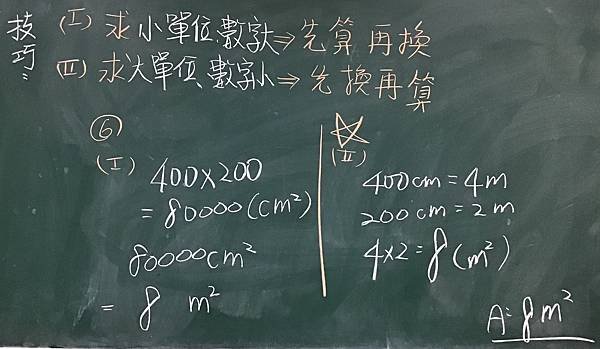 技巧:
(I) 求小單位,數字大⇒先算再換
(II) 求大單位,數字小⇒先換再算
⑥
(I) 400×200
=80000(cm²)
80000cm²
= 8 m²
☆
(II)
400cm=4m
200cm=2m
4×2=8(m²)
A:8m²